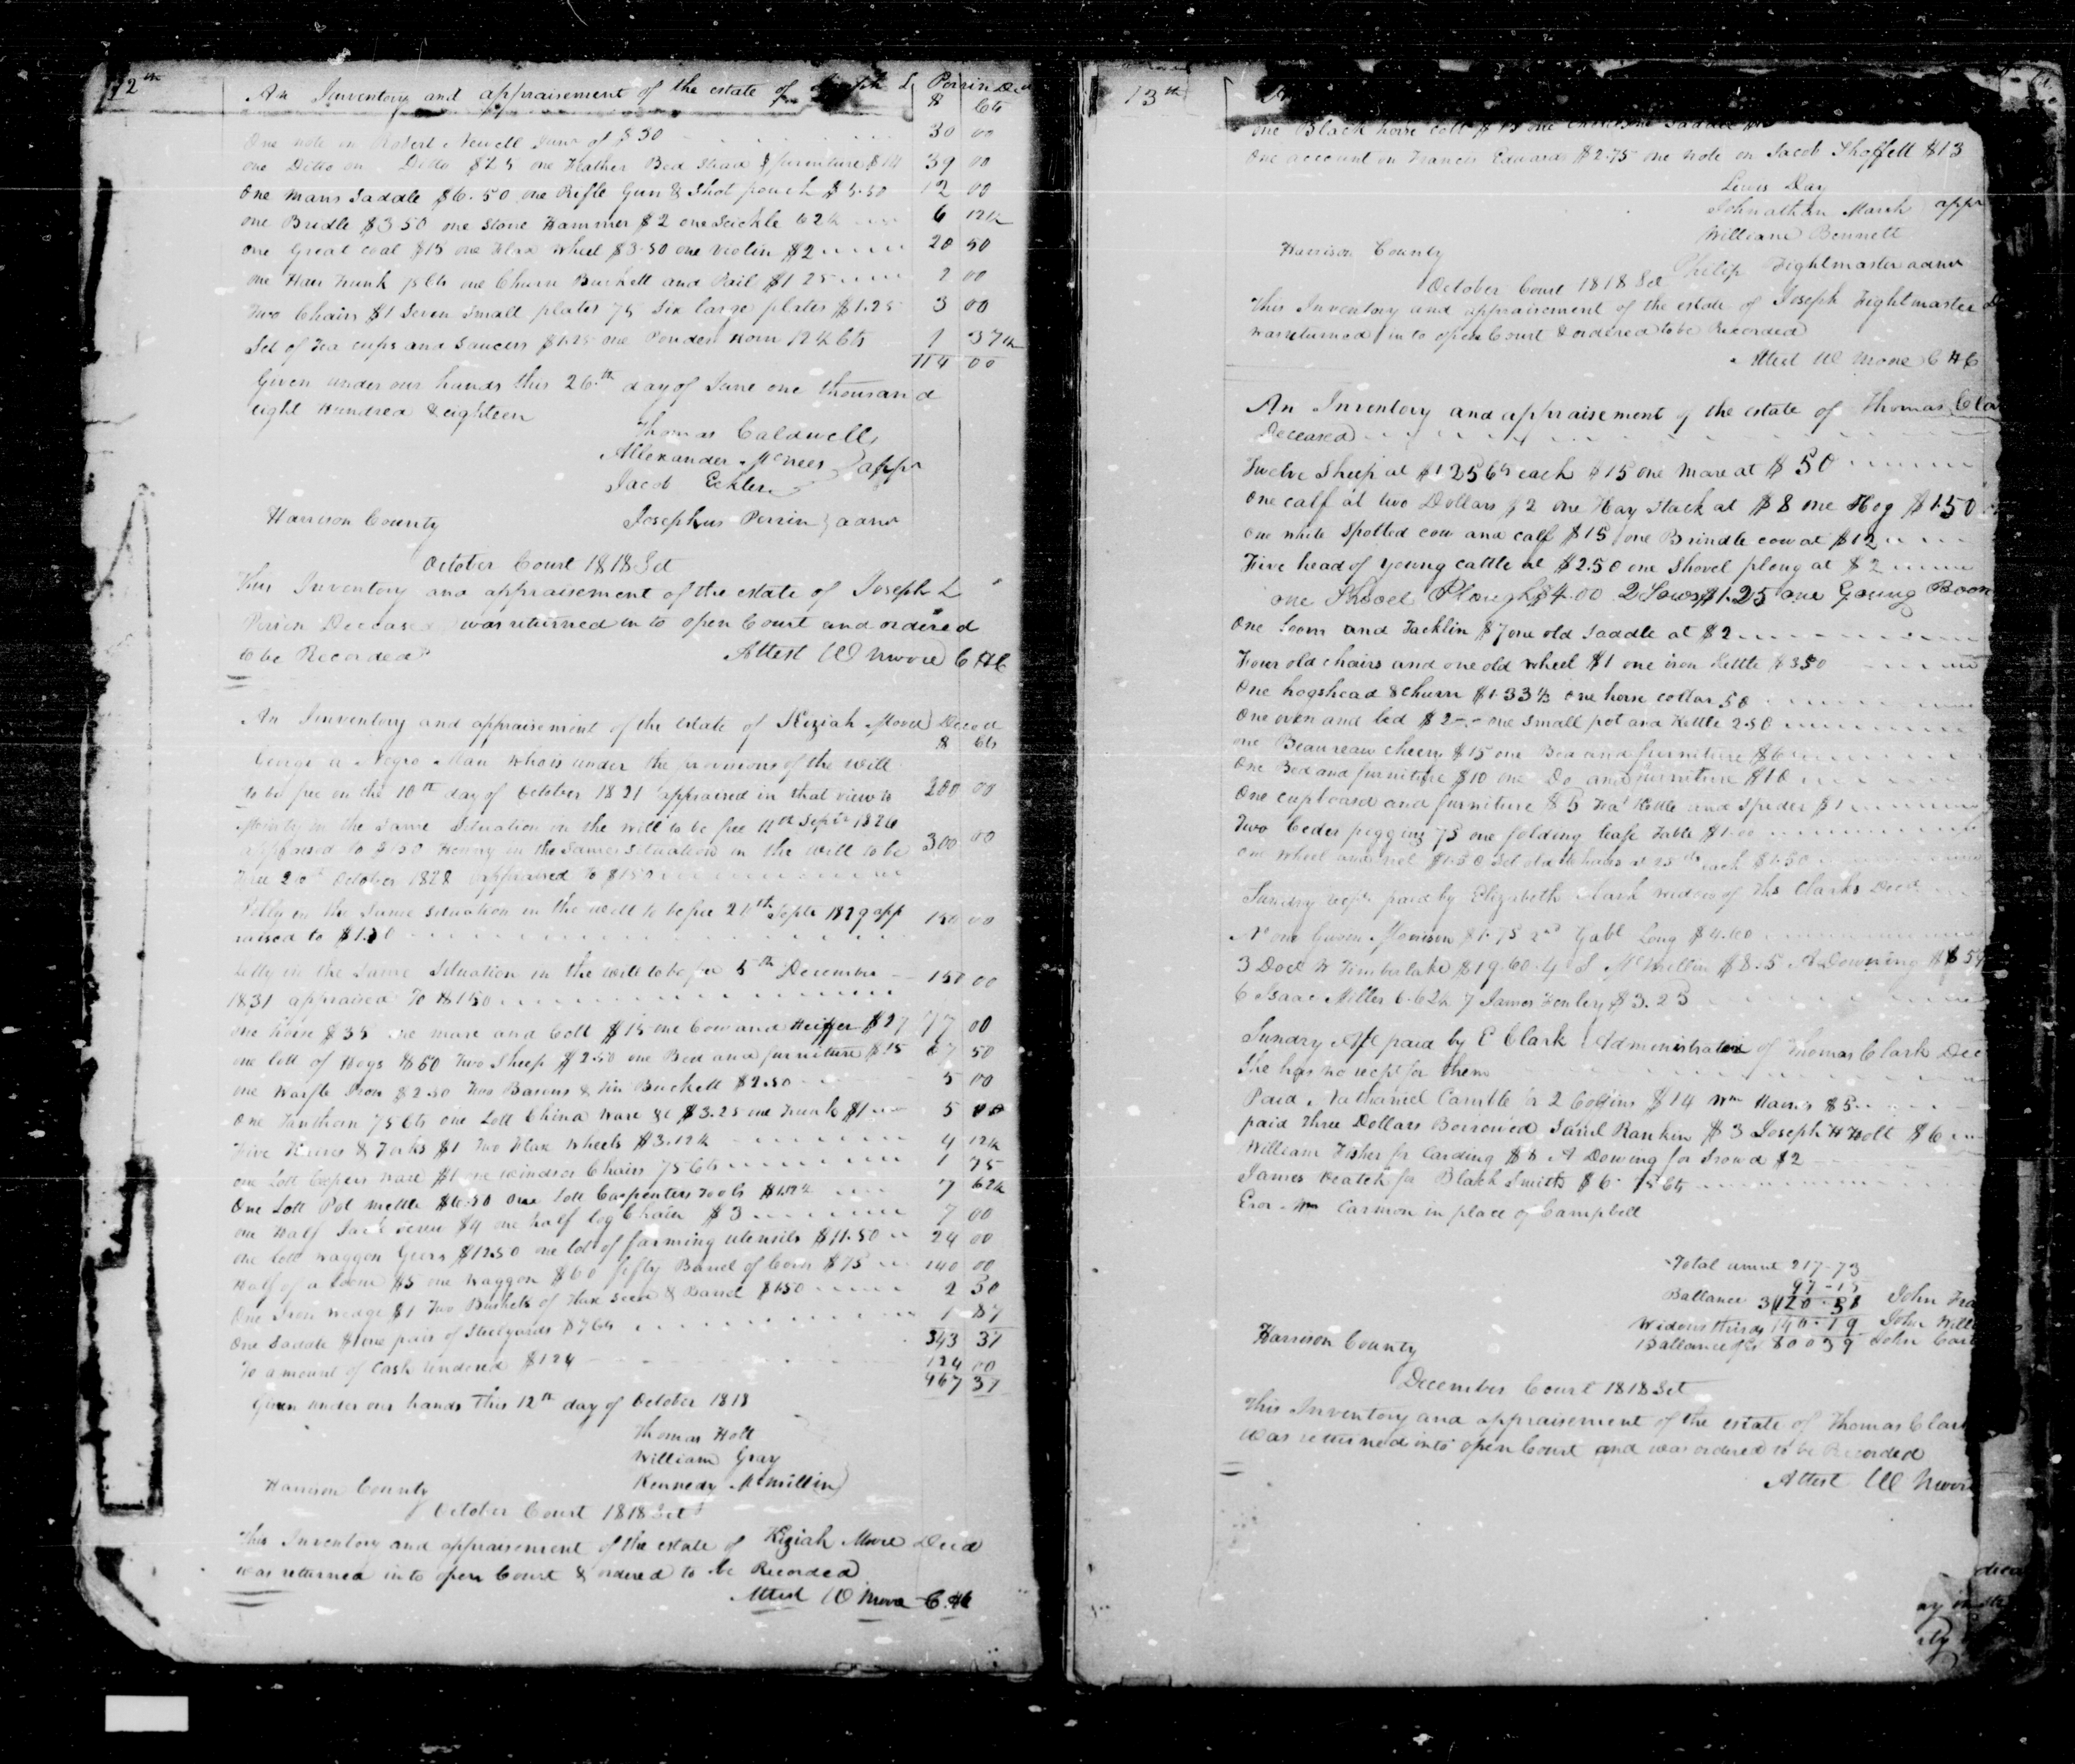 12th
An Innventory and appraisement of the estate of Joseph L Perrin Decd
$ Cts
One note on Robert Newell Junr of $30 30 00
one Ditto on Ditto $25 one Feather Bed Stead & furniture $14 39 00
One Mans Saddle $6.50 one Rifle Gun & Shot pouch $5.50 12 00
one Bridle $3 50 one Stone Hammer $2 one Scickle 62½ 6 12½
one Great coat $15 one Flax wheel $3.50 one violin $2 20 50
one Hair Trunk 75 Cts one Churn Buckett and Pail $1 25 2 00
Two Chairs $1 Seven Small plates 75 Six large plates $1.25 3 00
Set of Tea cups and Saucers $1.25 one Powder Horn 12½ Cts 1 37½
114 00
Given under our hands this 26th day of June one thousand
eight Hundred & eighteen
Thomas Caldwell
Allexander McNees appr
Jacob Eckler
Harrison County Josephus Perrin admr
October Court 1818 Sct
This Inventory and appraisement of the estate of Joseph L
Perrin Deceased was returned in to open Court and ordered
to be Recorded Attest W Moore C H C
An Innventory and appraisement of the estate of Keziah Moore Decd
$ Cts
George a Negro Man who is under the provisions of the will
to be free on the 10th day of October 1821 appraised in that view to 200 00
in the Same Situation in the will to be free 11th Septr 1826
appraised to $150 Henry in the Same Situation in the will to be 300 00
free October 1828 appraised to $150
in the Same Situation in the will to be free Septr 1829 app
raised to $150 150 00
in the Same Situation in the will to be free 5th December
1831 appraised To $150 150 00
one horse $35 one mare and Colt $15 one Cow and Heiffer $27 77 00
one lott of Hogs $50 Two Sheep $2.50 one Bed and furniture $15 67 50
one Waffle Iron $2.50 Two Basons & Tin Buckett $2.50 5 00
One Lanthorn 75 Cts one Lott China Ware &c $3.25 one Trunk $1 5 00
Five Knives & Forks $1 Two Flax Wheels $3.12½ 4 12½
one Lott Cupers ware $1 one windsor Chairs 75 Cts 1 75
One Lott Pot mettle $6.50 one Lott Carpenters Tools $1.12½ 7 62½
one Half Jack Screw $4 one half log Chain $3 7 00
one lott waggon Geers $12.50 one lot of farming utensils $11.50 24 00
Half of a Loom $5 one waggon $60 fifty Barrel of Corn $75 140 00
One Iron wedge $1 Two Bushels of Flax Seed & Barrel $1.50 2 50
One Saddle $1 one pair of Steelyards 87 Cts 1 87
343 37
To amount of Cash Tendered $124 124 00
467 37
Given under our hands This 12th day of October 1818
Thomas Holt
William Gray
Harrison County Kennedy McMillin
October Court 1818 Sct
This Inventory and appraisement of the estate of Keziah Moore Decd
was returned into open Court & ordered to be Recorded
Attest W Moore C.H.C
13th
one Black horse Colt $
One account on Francis Edwards $2.75 one note on Jacob Shoffett $13
Lewis Day
Johnathan Marsh appr
William Bennett
Harrison County Philip Fightmaster admr
October Court 1818 Sct
This Inventory and appraisement of the estate of Joseph Fightmaster
was returned in to open Court & ordered to be Recorded
Attest W Moore C H C
An Inventory and appraisement of the estate of Thomas Cla
Deceased
Twelve Sheep at $1 25 Cts each $15 one Mare at $50
One calf at two Dollars $2 one Hay Stack at $8 one Hog $1.50
One white Spotted cow and calf $15 one Brindle cow at $12
Five head of young cattle at $2.50 one Shovel plong at $2
one Shovel Plough $4.00 2 Sows $1.25 one Young
One Loom and Tacklin $7 one old Saddle at $2
Four old chairs and one old wheel $1 one iron Kettle $350
One hogshead & churn $1.33⅓ one horse collar 50
One oven and led $2 one Small pot and Kettle 2.50
one Beaureau $15 one Bed and furniture $6
One Bed and furniture $10 one Do and furniture $10
One cupboard and furniture $5 Tea Kettle and Spider $1
Two Ceder piggins 75 one folding leafe Table $1.00
One wheel and reel $1.50 Set old chairs at 25 cts each $1.50
Sundry recpts paid by Elizabeth Clark widow of Ths Clarks Decd
No one Morrison $1.75 2nd Gabl Long $4.00
3 Doct W Timberlake $19.60 4 S McMillin $8. 5 A Downing
6 Isaac Miller 6.62½ 7 James Henley $3.23
Sundry paid by E Clark Administrator of Thomas Clark Dec
She has no recpt for them
Paid Nathaniel for 2 Coffins $14 Wm $5
paid Three Dollars Borrowed Saml Rankin $3 Joseph H Holt $6
William Fisher for Carding A Downing for $2
James Veatch for Black Smith $6 75 Cts
Eror Wm Carmon in place of Campbell
Total amnt 217-73
97-15
Ballance 120.58 John
Widows thirds John
Harrison County Ballance John
December Court 1818 Sct
This Inventory and appraisement of the estate of Thomas Clar
was returned into open Court and was ordered to be Recorded
Attest W Moore